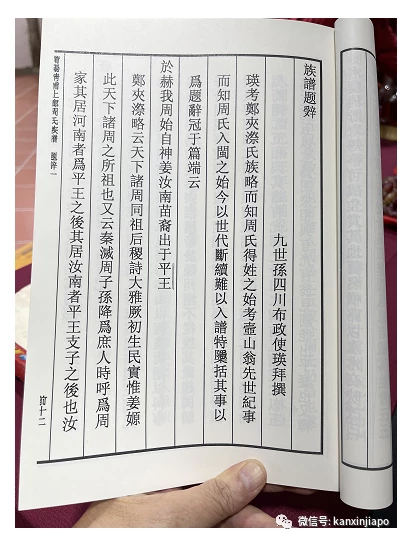 族譜題辤
九世孫四川布政使瑛拜撰
瑛考鄭夾漈氏族略而知周氏得姓之始考壺山翁先世紀事
而知周氏入閩之始今以世代斷續難以入譜特櫽括其事以
爲題辭冠于篇端云
於赫我周始自神姜汝南苗裔出于平王
鄭夾漈略云天下諸周同祖后稷詩大雅厥初生民實惟姜嫄
此天下諸周之所祖也又云秦滅周子孫降爲庶人時呼爲周
家其居河南者爲平王之後其居汝南者平王支子之後也汝
微信号: kanxinjiapo